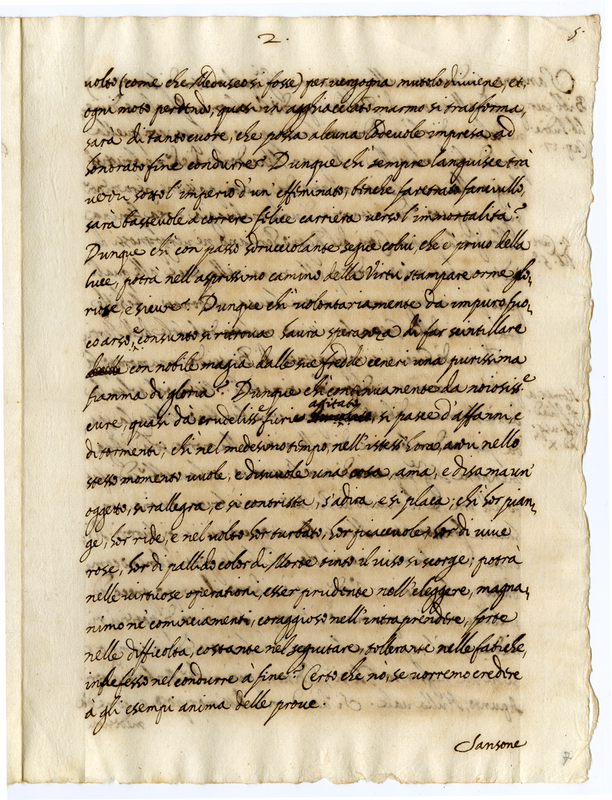 2.
5.
volto (come che Meduseo si fosse) per vergogna mutolo diviene, et
ogni moto perdendo, quasi in agghiacciato marmo si trasforma,
sarà di tanto cuore, che possa alcuna lodevole impresa ad
honorato fine condurre? Dunque chi sempre languisce trà
vezzi sotto l'imperio d'un effeminato, benche faretrato fanciullo,
sara bastevole à correre felice carriera verso l'immortalità?
Dunque chi con passo sdrucciolante segue colui, che è privo della
luce, potrà nell'asprissimo camino della Virtù stampare orme glo„
riose, e sicure? Dunque chi volontariamente da impuro fuo„
co arso, e consunto si ritrova havrà speranza di far scintillare
con nobile magia dalle sue fredde ceneri una purissima
fiamma di gloria? Dunque chi continuamente da noiosiss.e
agitato
cure, quasi da crudeliss.e furie, si pasce d'affanni, e
di tormenti; chi nel medesimo tempo, nell'istess'hora, anzi nello
stesso momento vuole, e disvuole una cosa, ama, e disama un
oggetto, si rallegra, e si contrista, s'adira, e si placa; chi hor pian„
ge, hor ride, e nel volto hor turbato, hor piacevole, hor di vive
rose, hor di pallido color di Morte tinto il viso si scorge; potrà
nelle virtuose operationi, esser prudente nell'eleggere, magna„
nimo nè cominciamenti, coraggioso nell'intraprendere, forte
nelle difficoltà, costante nel seguitare, tollerante nelle fatiche,
indefesso nel condurre à fine? Certo che nò, se vorremo credere
à gli esempi anima delle prove.
Sansone
7